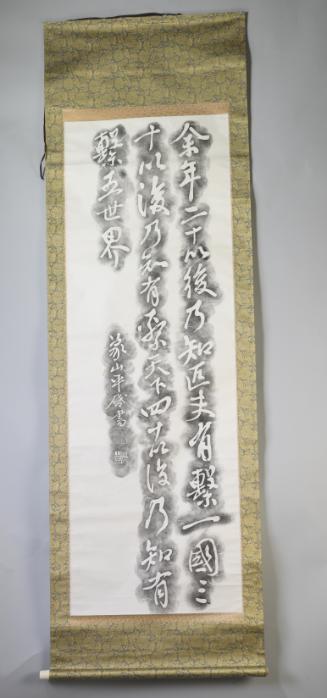 余年二十以後乃知匹夫有繫一國三
十以後乃知有繫天下四十以後乃知有
繫五世界
象山平啓書